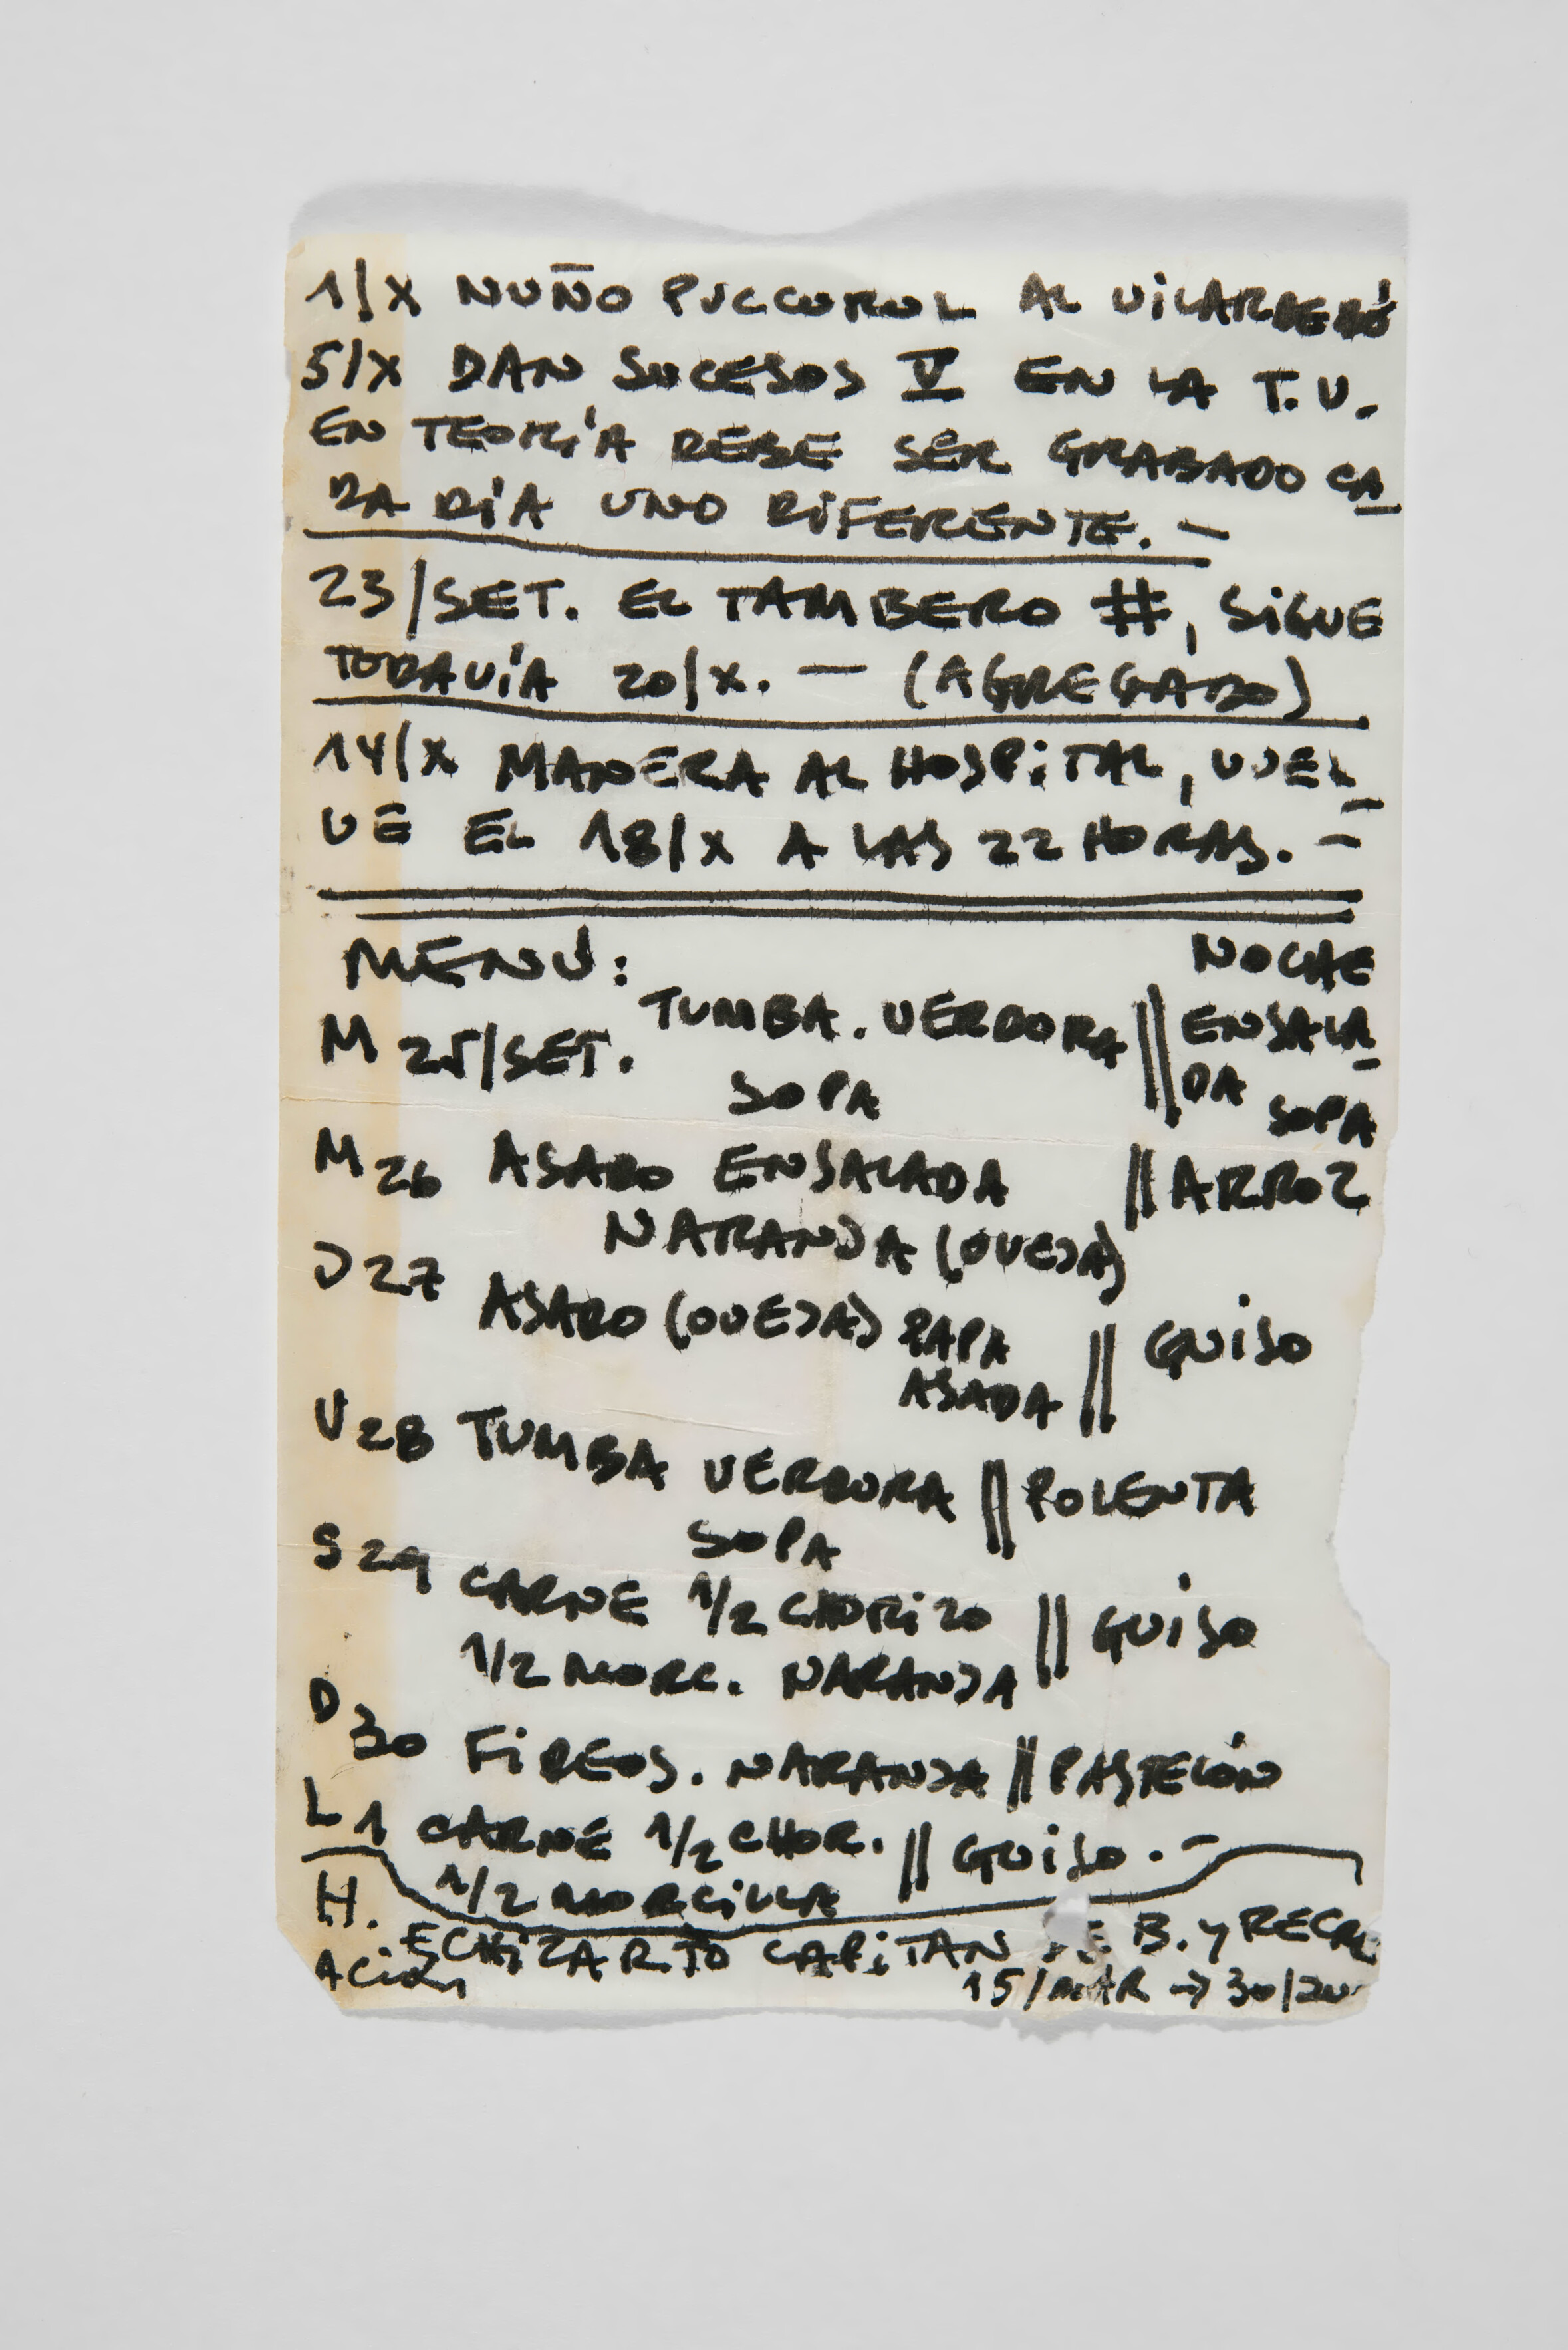 1/X NUÑO PUCCUROL AL VILARDEBÓ
5/X DAN SUCESOS V EN LA T.V.
EN TEORÍA DEBE SER GRABADO CA-
DA DÍA UNO DIFERENTE. —
23/SET. EL TAMBERO #, SIGUE
TODAVÍA 20/X. — (AGREGADO)
14/X MANERA AL HOSPITAL, VUEL-
VE EL 18/X A LAS 22 HORAS. —
MENÚ: NOCHE
M 25/SET. TUMBA. VERDURA || ENSALA-
SOPA DA SOPA
M 26 ASADO ENSALADA || ARROZ
NARANJA (OVEJA)
J 27 ASADO (OVEJA) PAPA || GUISO
ASADA
V 28 TUMBA VERDURA || POLENTA
SOPA
S 29 CARNE 1/2 CHORIZO || GUISO
1/2 MORC. NARANJA
D 30 FIDEOS. NARANJA || PASTELÓN
L 1 CARNE 1/2 CHOR. || GUISO. —
1/2 MORCILLA
H. ECHIZARTO CAPITAN DE B. Y RECRE
ACIÓN 15/MAR → 30/